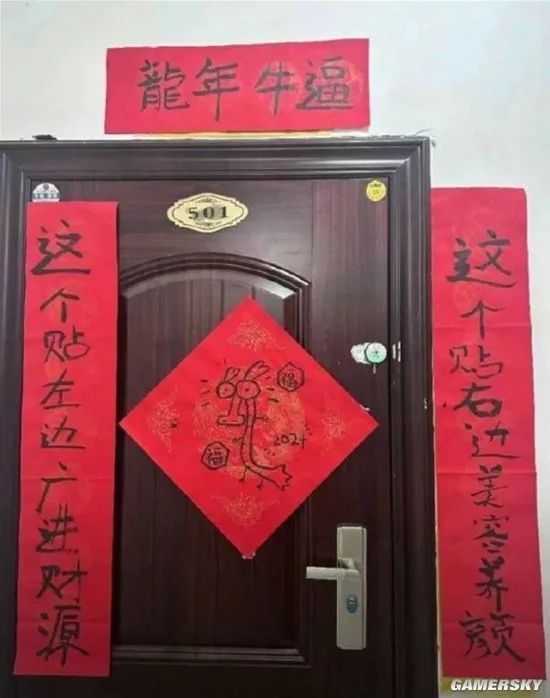 龍年牛逼
501
这个贴左边广进财源
这个贴右边美容养颜
福
福
2024
GAMERSKY